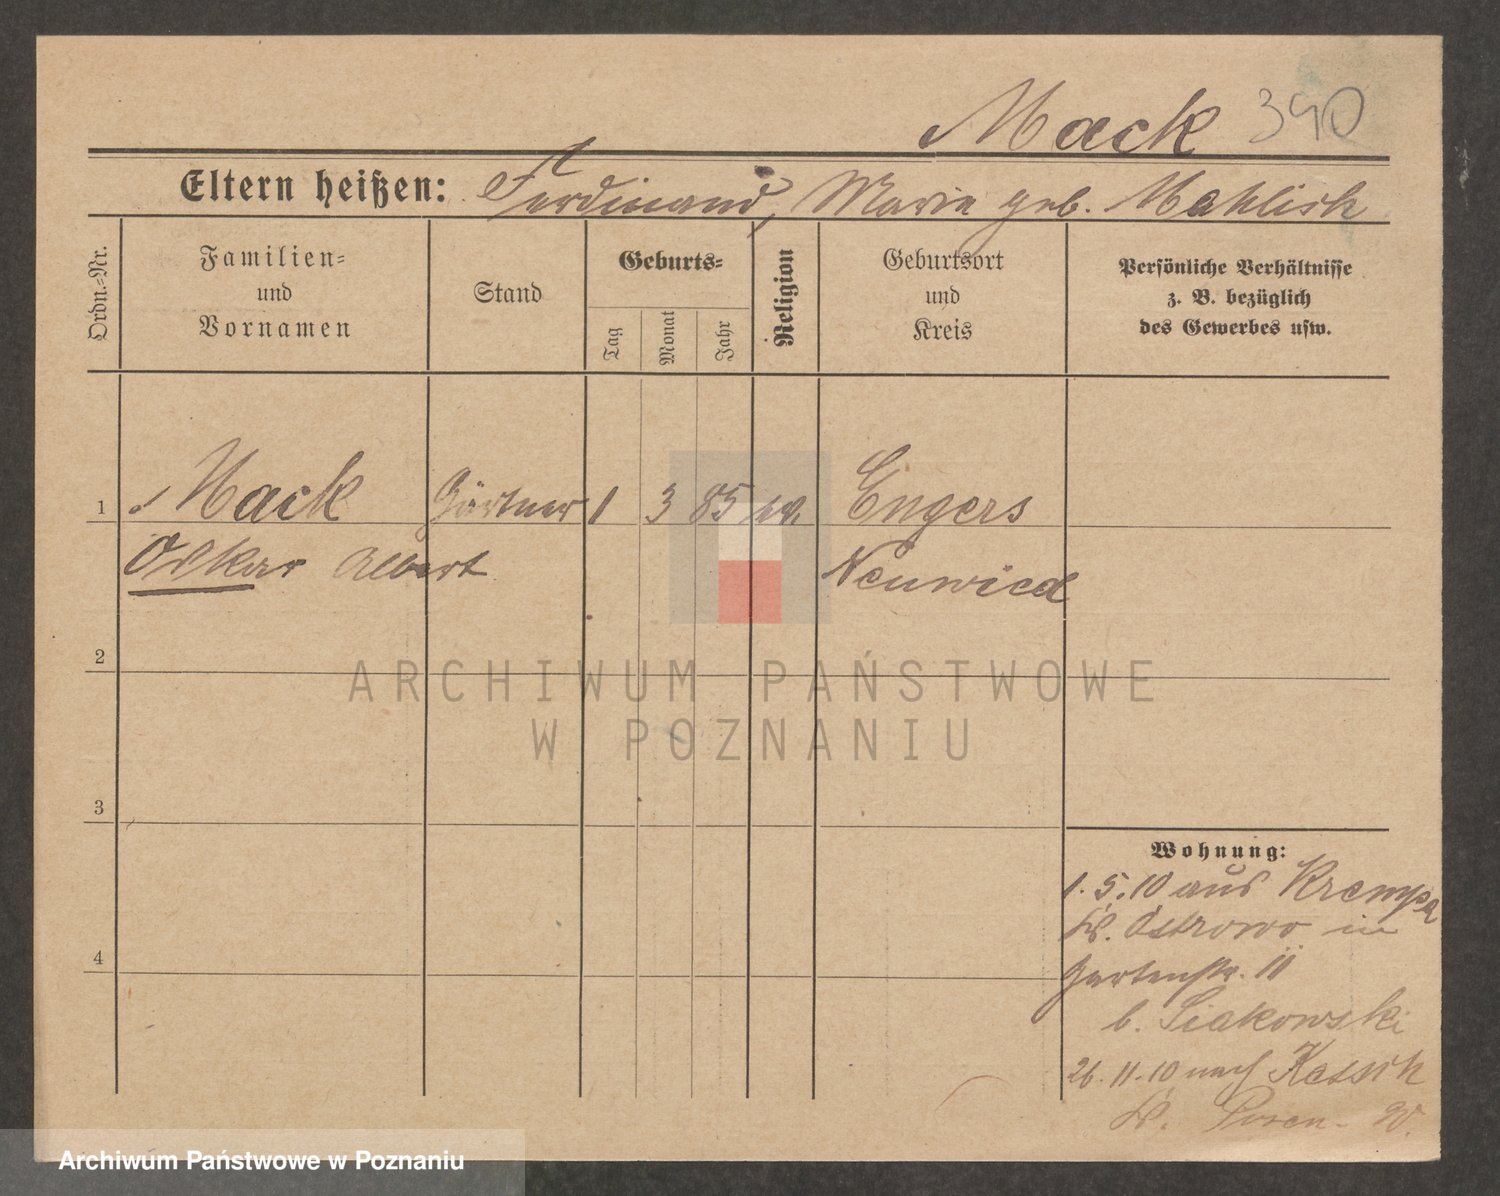 Mack 390
Eltern heißen: Ferdinand, Marie geb. Mahlich
Ordn.-Nr.
Familien-
und
Vornamen
Stand
Geburts-
Tag
Monat
Jahr
Religion
Geburtsort
und
Kreis
Persönliche Verhältnisse
z. B. bezüglich
des Gewerbes usw.
1 Mack Gärtner 1 3 85 ev. Engers
Oskar Albert Neuwied
2
3
4
Wohnung:
1.5.10 aus Krempa
Kr. Ostrowo in
Gartenstr. 11
b. Siakowski
26.11.10 nach
Kr. Posen-W.
ARCHIWUM PAŃSTWOWE
W POZNANIU
Archiwum Państwowe w Poznaniu